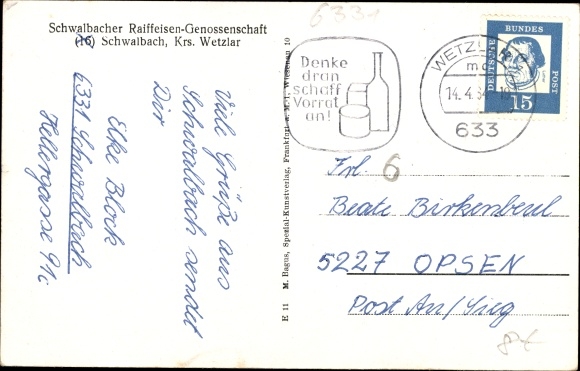 Schwalbacher Raiffeisen-Genossenschaft
(16) Schwalbach, Krs. Wetzlar
Viele Grüße aus
Schwalbach sendet
Dir
Elke Block
6331 Schwalbach
E 11 M. Bagus, Spezial-Kunstverlag, Frankfurt a. M.-1, Wiesenau 10
633
Denke
dran
schaff
Vorrat
an!
WETZLAR
14. 4. 64
633
DEUTSCHE
BUNDES
POST
15
Frl.
6
Beate Birkenbeul
5227 OPSEN
Post Au/Sieg
8€